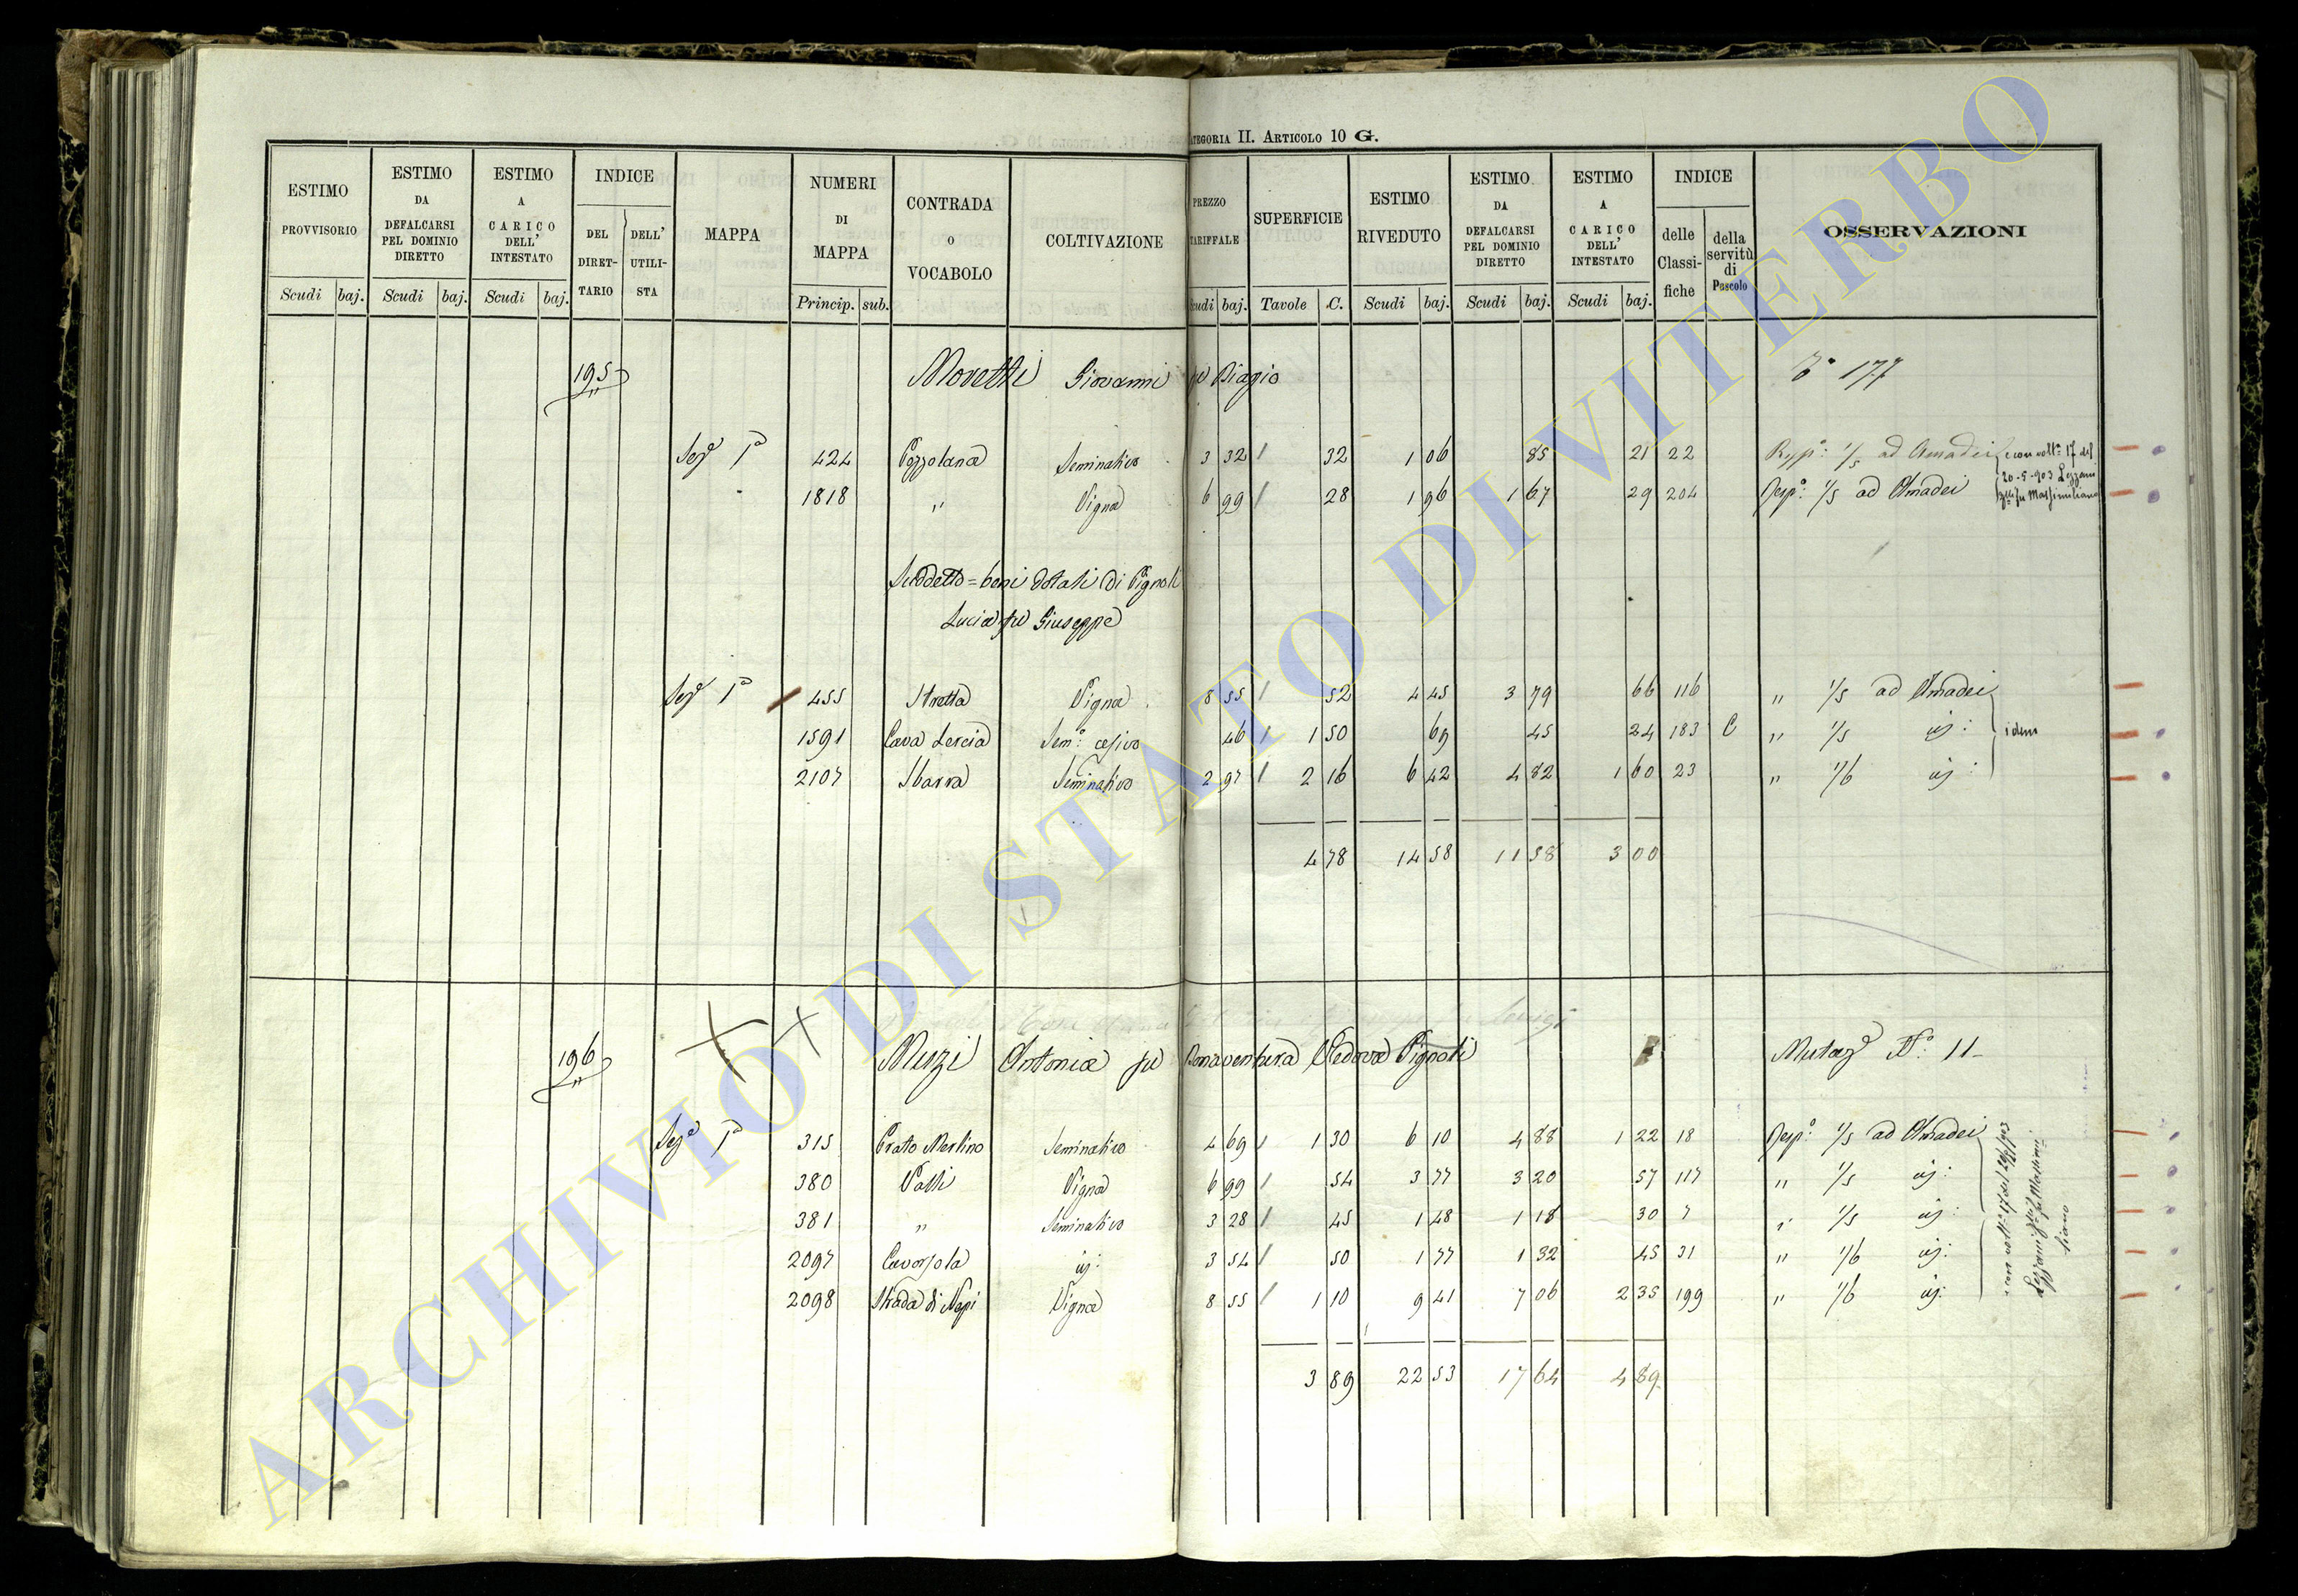 CATEGORIA II. ARTICOLO 10 G.
ESTIMO PROVVISORIO Scudi baj.
ESTIMO DA DEFALCARSI PEL DOMINIO DIRETTO Scudi baj.
ESTIMO A CARICO DELL' INTESTATO Scudi baj.
INDICE DEL DIRETTARIO DELL' UTILISTA
MAPPA
NUMERI DI MAPPA Princip. sub.
CONTRADA O VOCABOLO
COLTIVAZIONE
PREZZO TARIFFALE Scudi baj.
SUPERFICIE Tavole C.
ESTIMO RIVEDUTO Scudi baj.
ESTIMO DA DEFALCARSI PEL DOMINIO DIRETTO Scudi baj.
ESTIMO A CARICO DELL' INTESTATO Scudi baj.
INDICE delle Classifiche della servitù di Pascolo
OSSERVAZIONI
195 Moretti Giovanni fu Biagio 177
Seze 1a 424 Pozzolana Seminativo 3 32 32 1 06 85 21 22 Resp: 1/5 ad Amadei con volt. 17 del
1818 " Vigna 6 99 28 1 96 1 67 29 204 Resp: 1/5 ad Amadei 20-5-903 Lezzani
fu Massimiliano
Suddetto = beni dotali di Pignoli
Lucia fu Giuseppe
Seze 1a 455 Stretta Vigna 8 55 52 4 45 3 79 66 116 " 1/5 ad Amadei
1591 Cava Lercia Sem: cesivo 46 1 50 69 45 24 183 C " 1/5 idem
2107 Sbarra Seminativo 2 97 2 16 6 42 4 82 1 60 23 " 1/6
4 78 14 58 11 58 3 00
196 Muzi Antonia fu Bonaventura Vedova Pignoli Mutaze No: 11
Sezе 1a 315 Prato Merlino Seminativo 4 69 1 30 6 10 4 88 1 22 18 Resp: 1/5 ad Amadei
380 Valli Vigna 6 99 54 3 77 3 20 57 117 " 1/5
381 " Seminativo 3 28 45 1 48 1 18 30 7 " 1/5
2097 3 54 50 1 77 1 32 45 31 " 1/6
2098 Strada di Nepi Vigna 8 55 1 10 9 41 7 06 2 35 199 " 1/6
3 89 22 53 17 64 4 89
ARCHIVIO DI STATO DI VITERBO